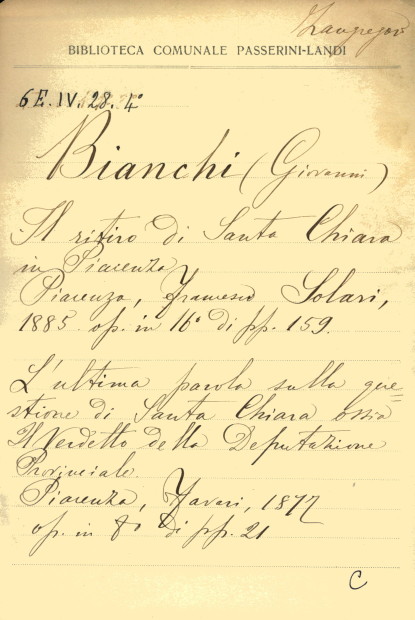 BIBLIOTECA COMUNALE PASSERINI-LANDI
6E.IV.28.4°
Bianchi (Giovanni)
Il ritiro di Santa Chiara
in Piacenza
Piacenza, Francesco Solari,
1885 op. in 16° di pp. 159.
L'ultima parola sulla que=
stione di Santa Chiara ossia
Il Verdetto della Deputazione
Provinciale.
Piacenza, Tavari, 1877
op. in 8° di pp. 21
C